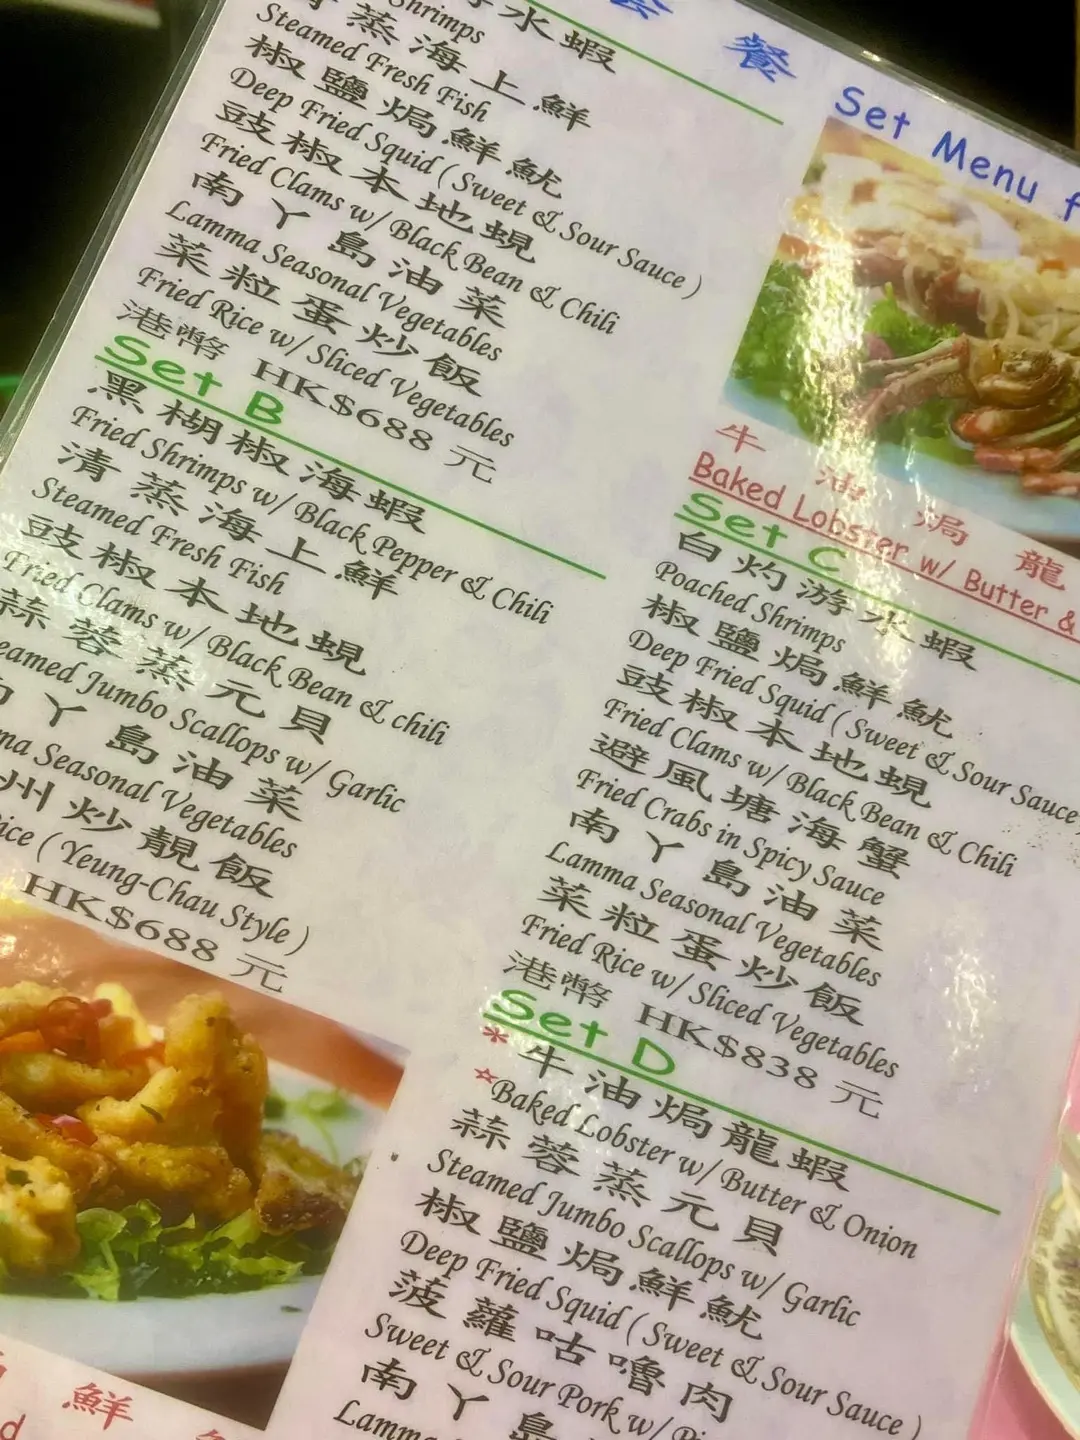 餐 Set Menu f
水蝦
Shrimps
蒸海上鮮
Steamed Fresh Fish
椒鹽焗鮮魷
Deep Fried Squid ( Sweet & Sour Sauce )
豉椒本地蜆
Fried Clams w/ Black Bean & Chili
南丫島油菜
Lamma Seasonal Vegetables
菜粒蛋炒飯
Fried Rice w/ Sliced Vegetables
港幣 HK$688 元
Set B
黑椒海蝦
Fried Shrimps w/ Black Pepper & Chili
清蒸海上鮮
Steamed Fresh Fish
豉椒本地蜆
Fried Clams w/ Black Bean & chili
蒜蓉蒸元貝
Steamed Jumbo Scallops w/ Garlic
丫島油菜
Seasonal Vegetables
州炒靚飯
( Yeung-Chau Style )
HK$688 元
鮮
牛油焗龍
Baked Lobster w/ Butter &
Set C
白灼游水蝦
Poached Shrimps
椒鹽焗鮮魷
Deep Fried Squid ( Sweet & Sour Sauce )
豉椒本地蜆
Fried Clams w/ Black Bean & Chili
避風塘海蟹
Fried Crabs in Spicy Sauce
南丫島油菜
Lamma Seasonal Vegetables
菜粒蛋炒飯
Fried Rice w/ Sliced Vegetables
港幣 HK$838 元
Set D
*牛油焗龍蝦
☆Baked Lobster w/ Butter & Onion
蒜蓉蒸元貝
Steamed Jumbo Scallops w/ Garlic
椒鹽焗鮮魷
Deep Fried Squid ( Sweet & Sour Sauce )
菠蘿咕嚕肉
Sweet & Sour Pork w/
南丫島
Lamma